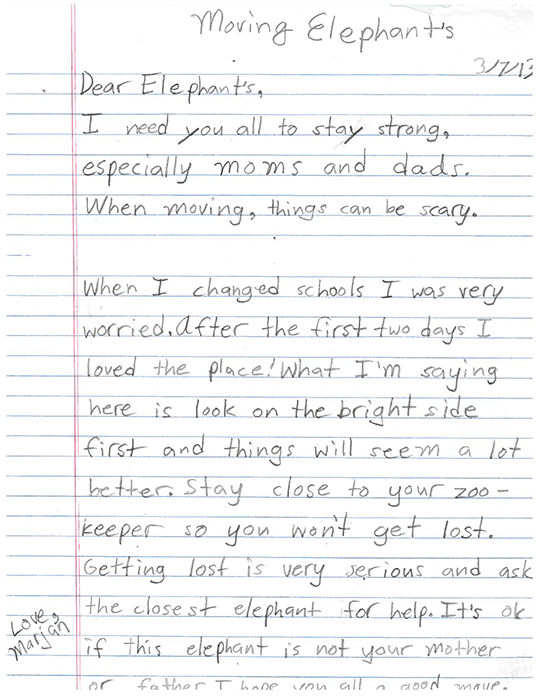 Moving Elephant's
3/7/13
Dear Elephant's,
I need you all to stay strong,
especially moms and dads.
When moving, things can be scary.
When I changed schools I was very
worried. After the first two days I
loved the place! What I'm saying
here is look on the bright side
first and things will seem a lot
better. Stay close to your zoo-
keeper so you won't get lost.
Getting lost is very serious and ask
the closest elephant for help. It's ok
if this elephant is not your mother
or father I hope you all a good move.
Love,
Marjan